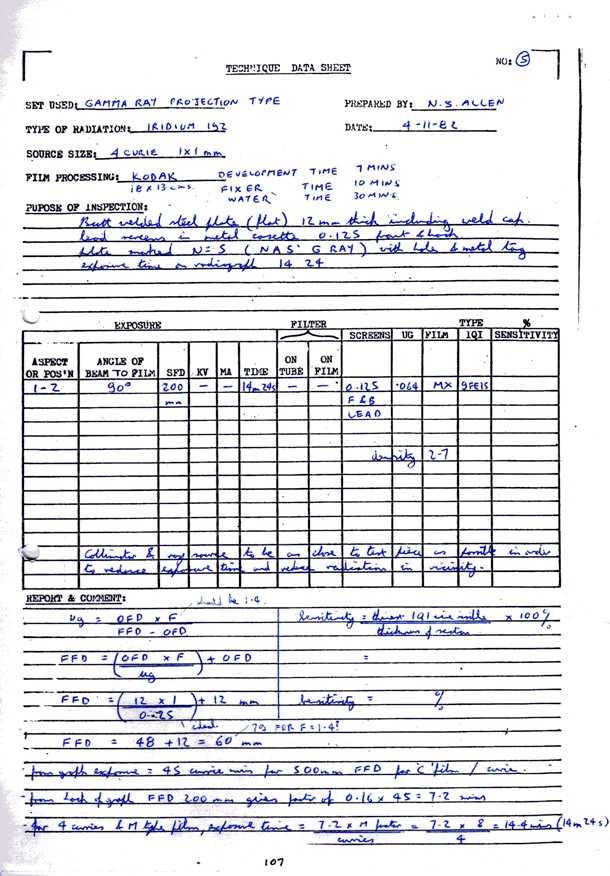 NO: 5
TECHNIQUE DATA SHEET
SET USED: GAMMA RAY PROJECTION TYPE PREPARED BY: N.S. ALLEN
TYPE OF RADIATION: IRIDIUM 192 DATE: 4-11-82
SOURCE SIZE: 4 CURIE 1 X 1 mm
FILM PROCESSING: KODAK DEVELOPMENT TIME 7 MINS
18 x 13 cms. FIXER TIME 10 MINS
WATER TIME 30 MINS.
PUPOSE OF INSPECTION:
Butt welded steel plate (flat) 12 mm thick including weld cap.
lead screens in metal casette 0.125 front & back
plate marked N=5 (NAS: G RAY) with hole & metal tag
exposure time on radiograph 14 24
EXPOSURE FILTER TYPE %
SCREENS UG FILM IQI SENSITIVITY
ASPECT OR POS'N ANGLE OF BEAM TO FILM SFD KV MA TIME ON TUBE ON FILM
1-2 90° 200 - - 14m24s - - 0.125 .064 MX 9FE15
mm F & B
LEAD
density 2-7
Collimator & ray source to be as close to test piece as possible in order
to reduce exposure time and reduce radiation in vicinity.
REPORT & COMMENT: should be 1.4.
ug = OFD x F / FFD - OFD Sensitivity = IQI x 100%
thickness of section
FFD = (OFD x F / ug) + OFD =
FFD = (12 x 1 / 0.25) + 12 mm Sensitivity = %
79 FOR F=1.4?
FFD = 48 + 12 = 60 mm
from graph exposure = 45 currie mins for 500mm FFD for 'C' film / currie.
from back of graph FFD 200 mm gives factor of 0.16 x 45 = 7.2 mins
for 4 curries & M type film, exposure time = 7.2 x M factor / curries = 7.2 x 8 / 4 = 14.4 mins (14m 24s)
107